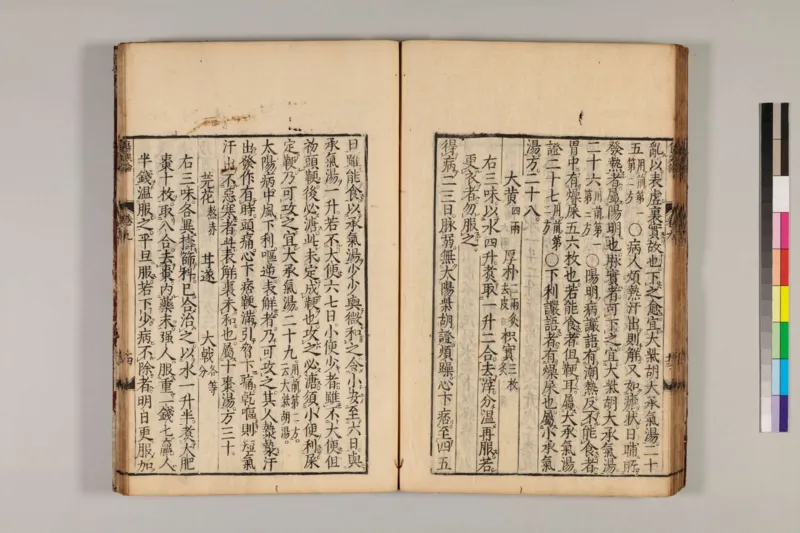 亂以表虛裏實故也下之愈宜大柴胡大承氣湯二十
五用前第一第二方○病人煩熱汗出則解又如瘧狀日晡所
發熱者屬陽明也脉實者可下之宜大柴胡大承氣湯
二十六用前第一第二方○陽明病讝語有潮熱反不能食者
胃中有燥屎五六枚也若能食者但鞕耳屬大承氣湯
證二十七用前第二方○下利讝語者有燥屎也屬小承氣
湯方二十八
大黃四兩 厚朴二兩炙去皮 枳實三枚炙
右三味以水四升煮取一升二合去滓分溫再服若
更衣者勿服之
得病二三日脉弱無太陽柴胡證煩躁心下痞至四五
日雖能食以承氣湯少少與微和之令小安至六日與
承氣湯一升若不大便六七日小便少者雖不大便但
初頭鞕後必溏此未定成鞕也攻之必溏須小便利屎
定鞕乃可攻之宜大承氣湯二十九用前第二方一云大柴胡湯
太陽病中風下利嘔逆表解者乃可攻之其人漐漐汗
出發作有時頭痛心下痞鞕滿引脅下痛乾嘔則短氣
汗出不惡寒者此表解裏未和也屬十棗湯方三十
芫花熬赤 甘遂 大戟各等分
右三味各異擣篩秤已合治之以水一升半煮大肥
棗十枚取八合去棗內藥末强人服重一錢匕羸人
半錢溫服之平旦服若下少病不除者明日更服加